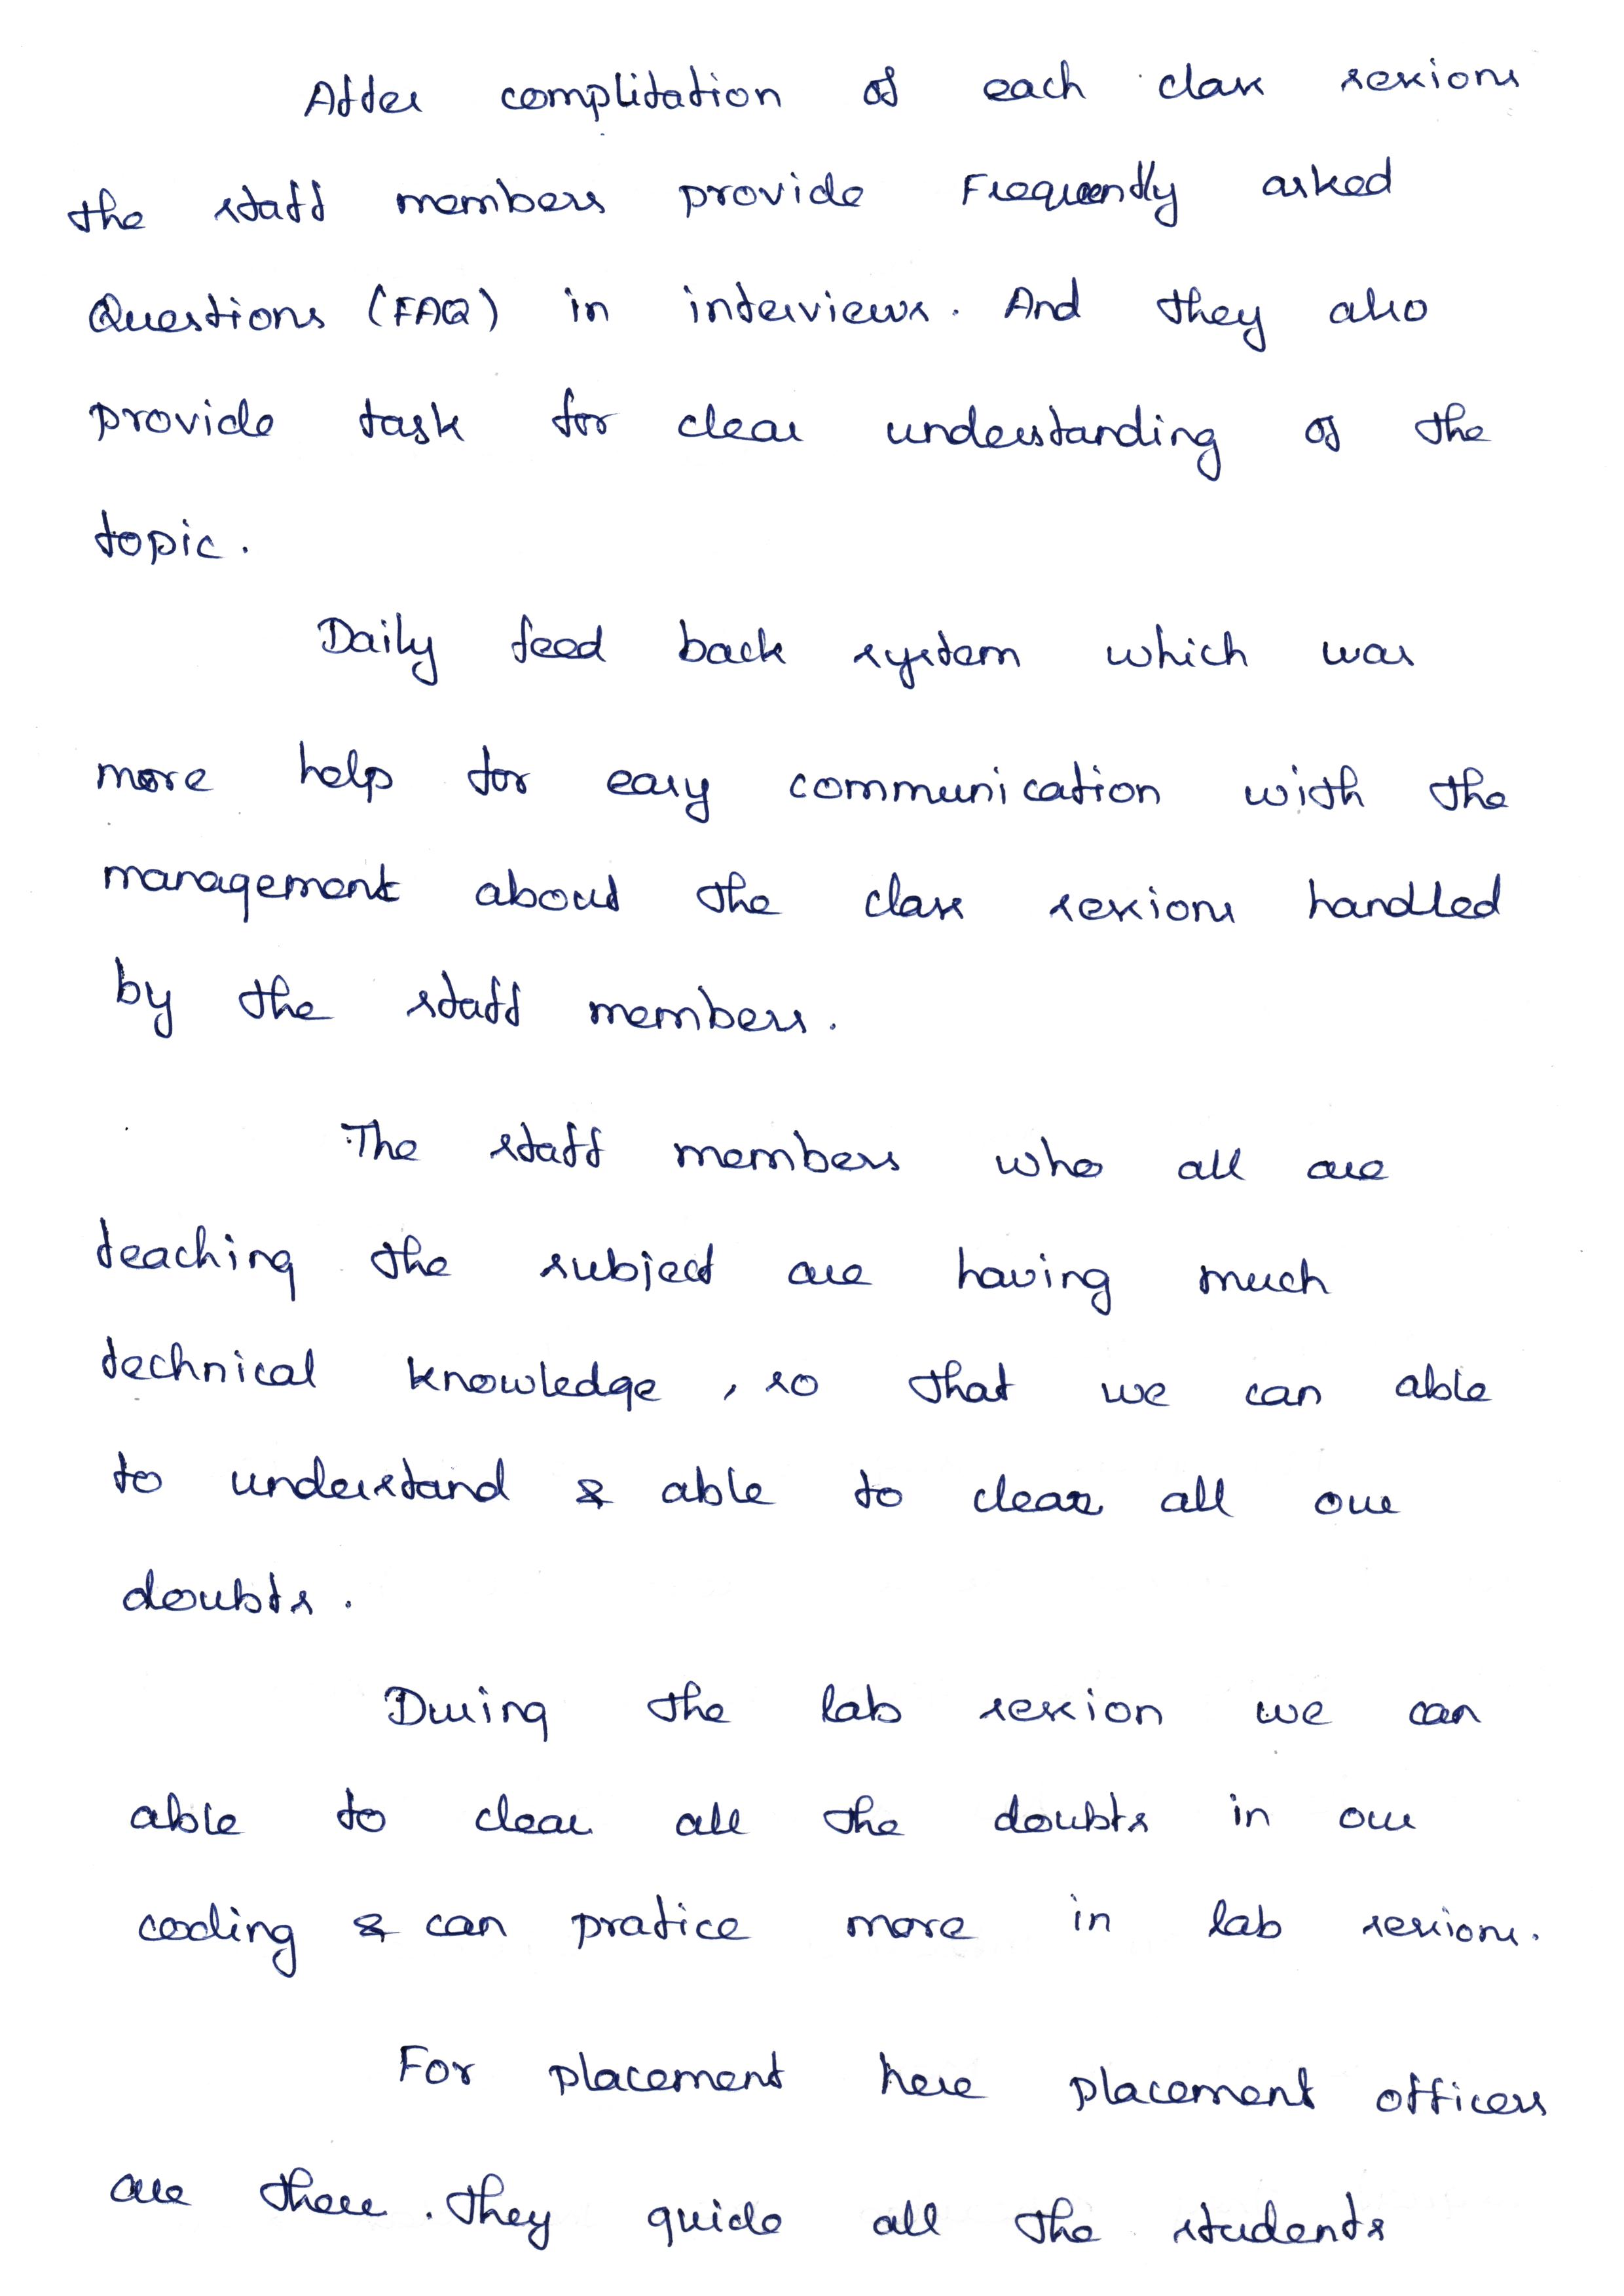 After complitation of each class sessions
the staff members provide Frequently asked
Questions (FAQ) in interviews. And they also
provide task for clear understanding of the
topic.
Daily feed back system which was
more help for easy communication with the
management about the class sessions handled
by the staff members.
The staff members who all are
teaching the subject are having much
technical knowledge, so that we can able
to understand & able to clear all our
doubts.
During the lab session we can
able to clear all the doubts in our
coding & can pratice more in lab sessions.
For placement here placement officers
are there. They guide all the students